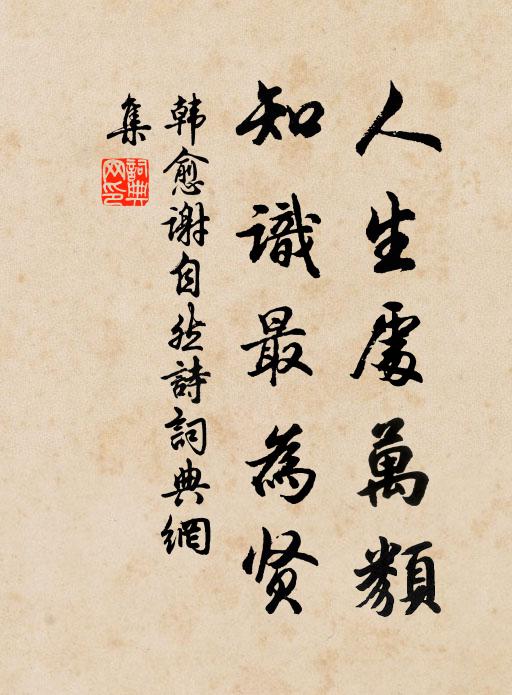 人生處萬類
知識最為贤
韩愈谢自然詩詞典網
集
詞典
网印